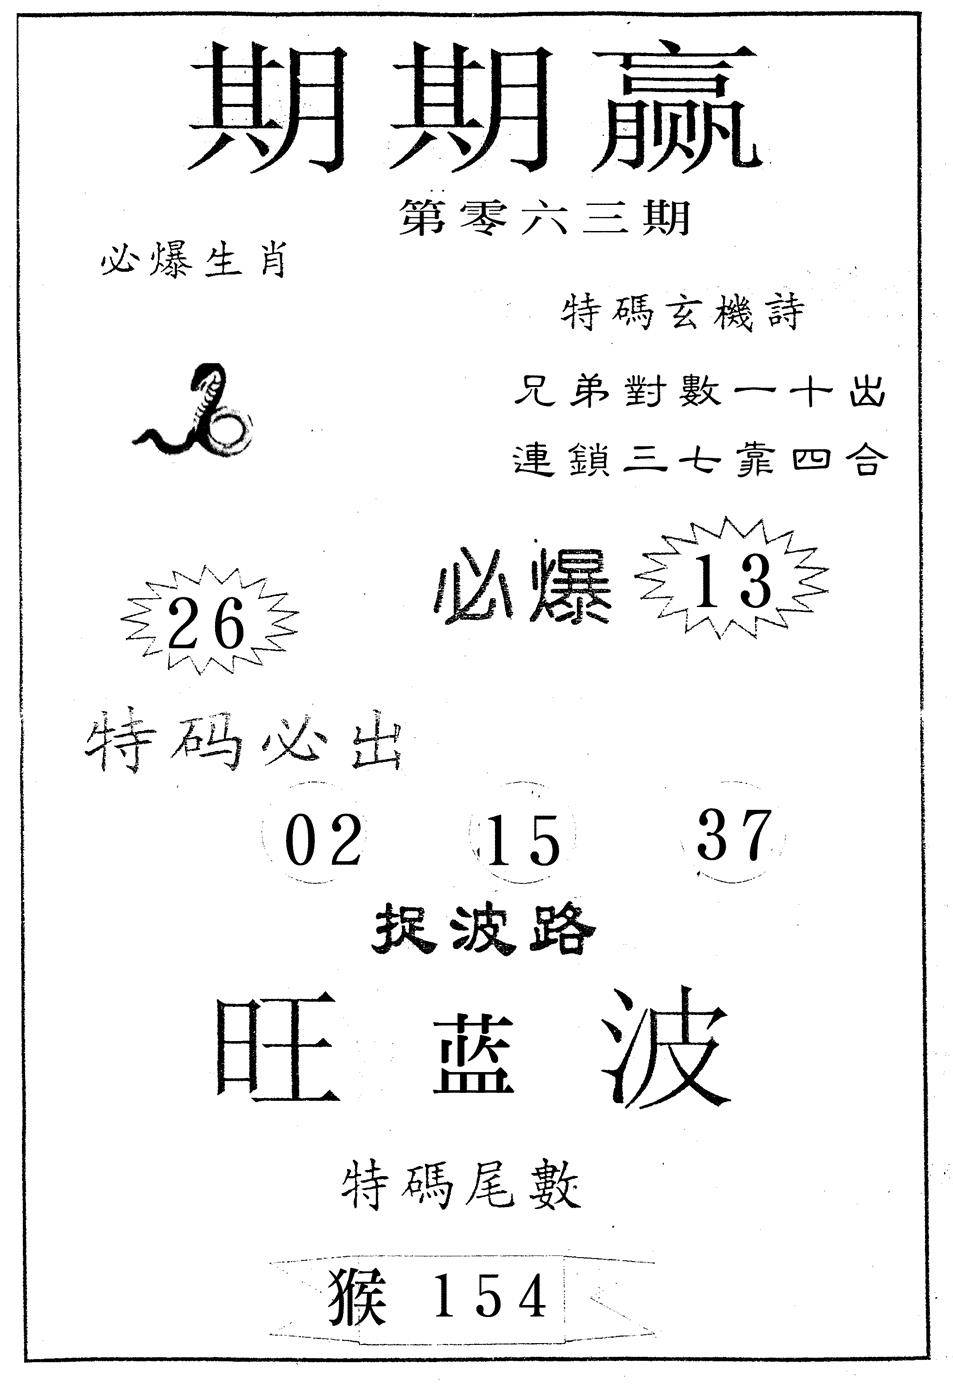 期期赢
第零六三期
必爆生肖
特碼玄機詩
兄弟對數一十出
連鎖三七靠四合
必爆 13
26
特码必出
02 15 37
捉波路
旺蓝波
特碼尾數
猴 154